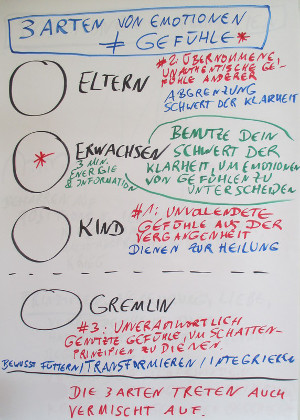 3 ARTEN VON EMOTIONEN
≠ GEFÜHLE*
ELTERN
#2: ÜBERNOMMENE,
UNAUTHENTISCHE GE-
FÜHLE ANDERER
ABGRENZUNG
SCHWERT DER KLARHEIT
ERWACHSEN
*
3 MIN.
ENERGIE
& INFORMATION
BENUTZE DEIN
SCHWERT DER
KLARHEIT, UM EMOTIONEN
VON GEFÜHLEN ZU
UNTERSCHEIDEN
KIND
#1: UNVOLLENDETE
GEFÜHLE AUS DER
VERGANGENHEIT
DIENEN ZUR HEILUNG
GREMLIN
#3: UNVERANTWORTLICH
GENUTZTE GEFÜHLE, UM SCHATTEN-
PRINZIPIEN ZU DIENEN.
BEWUSST FÜTTERN/TRANSFORMIEREN/INTEGRIEREN
DIE 3 ARTEN TRETEN AUCH
VERMISCHT AUF.